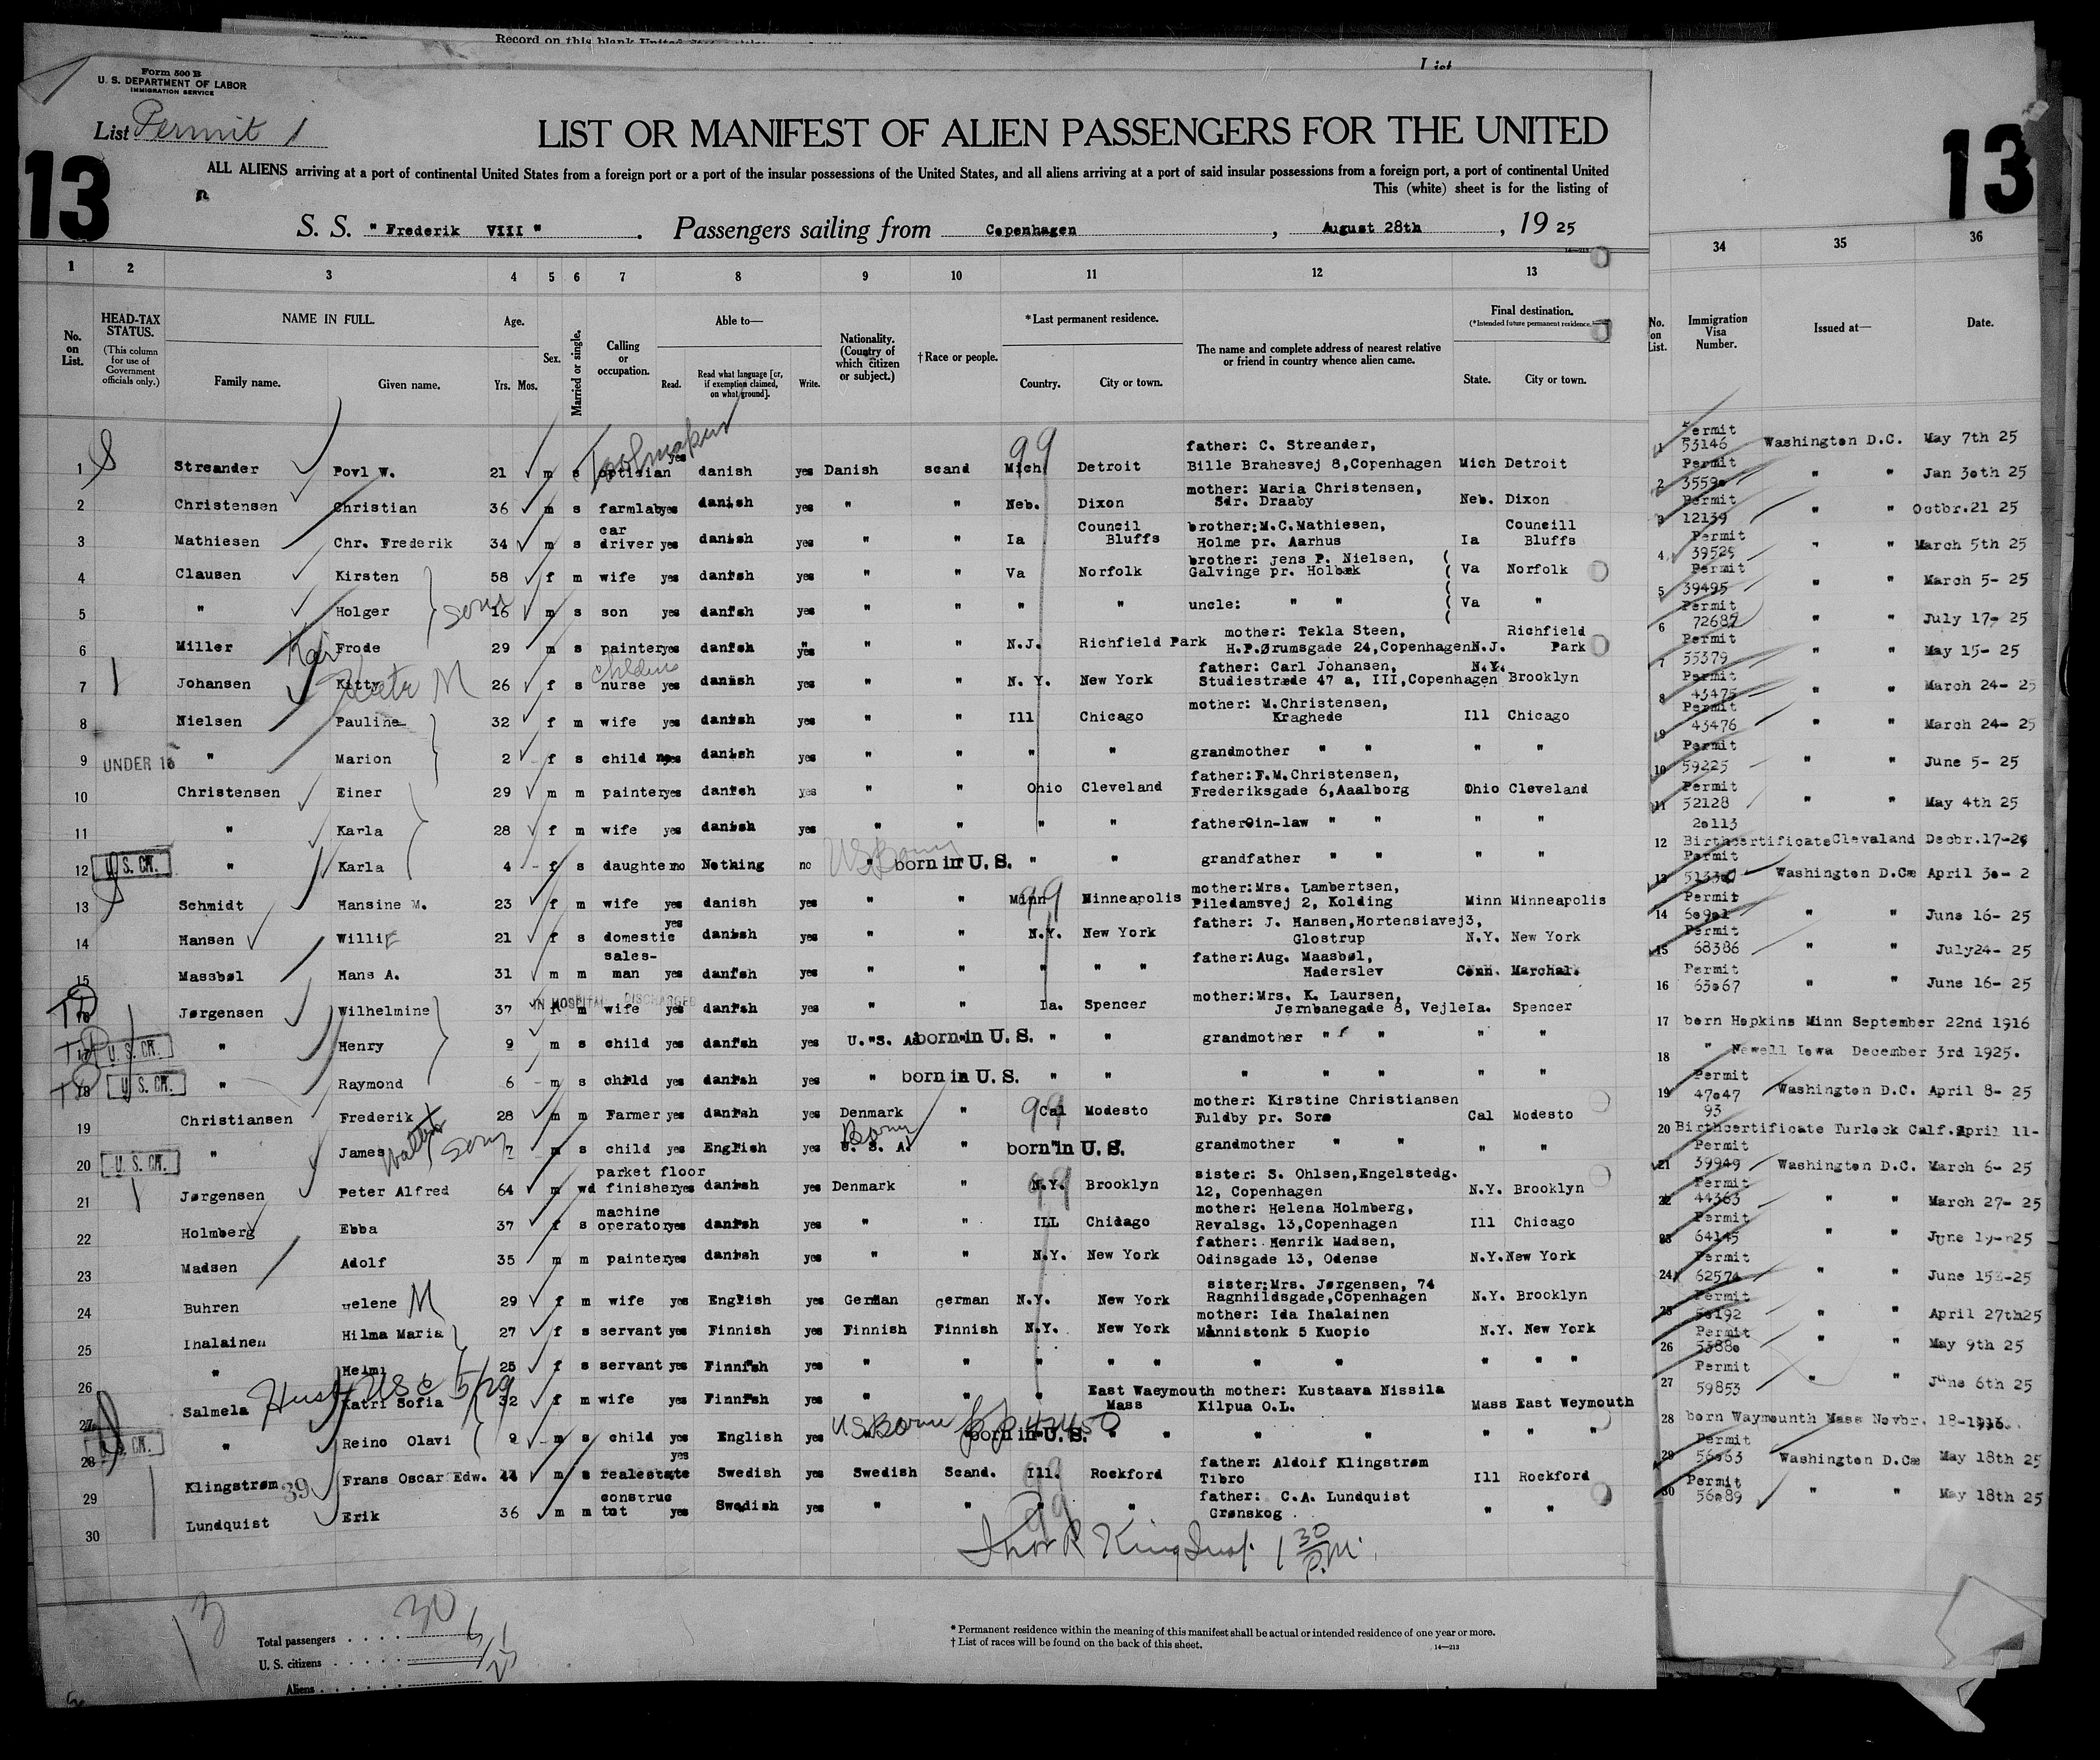 Record on this blank United
List
Form 500 B
U. S. DEPARTMENT OF LABOR
IMMIGRATION SERVICE
List Permit 1
13
13
LIST OR MANIFEST OF ALIEN PASSENGERS FOR THE UNITED
ALL ALIENS arriving at a port of continental United States from a foreign port or a port of the insular possessions of the United States, and all aliens arriving at a port of said insular possessions from a foreign port, a port of continental United
This (white) sheet is for the listing of
S. S. " Frederik VIII " . Passengers sailing from Copenhagen , August 28th , 19 25
14—213
1 2 3 4 5 6 7 8 9 10 11 12 13 34 35 36
No. on List.
HEAD-TAX STATUS.
(This column for use of Government officials only.)
NAME IN FULL.
Family name. Given name.
Age.
Yrs. Mos.
Sex.
Married or single.
Calling or occupation.
Able to—
Read. Read what language [or, if exemption claimed, on what ground]. Write.
Nationality. (Country of which citizen or subject.)
†Race or people.
*Last permanent residence.
Country. City or town.
The name and complete address of nearest relative or friend in country whence alien came.
Final destination.
(*Intended future permanent residence.)
State. City or town.
No. on List.
Immigration Visa Number.
Issued at—
Date.
Toolmaker 99
1 Streander Povl W. 21 m s optisian yes danish yes Danish scand Mich Detroit father: C. Streander, Bille Brahesvej 8,Copenhagen Mich Detroit
2 Christensen Christian 36 m s farmlab yes danish yes " " Neb. Dixon mother: Maria Christensen, Sdr. Draaby Neb. Dixon
3 Mathiesen Chr. Frederik 34 m s car driver yes danish yes " " Ia Council Bluffs brother:M.C.Mathiesen, Holme pr. Aarhus Ia Councill Bluffs
4 Clausen Kirsten 58 f m wife yes danish yes " " Va Norfolk brother: jens P. Nielsen, Galvinge pr. Holbæk Va Norfolk
5 " Holger 16 m s son yes danish yes " " " " uncle: " " Va "
6 Miller Kai Frode 29 m s painter yes danish yes " " N.J. Richfield Park mother: Tekla Steen, H.P.Ørumsgade 24,Copenhagen N.J. Richfield Park
7 Johansen Kitty 26 f s nurse yes danish yes " " N. Y. New York father: Carl Johansen, Studiestræde 47 a, III,Copenhagen N.Y. Brooklyn
8 Nielsen Pauline 32 f m wife yes danish yes " " Ill Chicago mother: M.Christensen, Kraghede Ill Chicago
9 UNDER 16 " Marion 2 f s child no danish yes " " " " grandmother " " " "
10 Christensen Einer 29 m m painter yes danish yes " " Ohio Cleveland father:F.M.Christensen, Frederiksgade 6,Aaalborg Ohio Cleveland
11 " Karla 28 f m wife yes danish yes " " " " father0in-law " " " "
12 U. S. CIT. " Karla 4 f s daughter no Nothing no " born in U. S. " " grandfather " " " "
13 Schmidt Hansine M. 23 f m wife yes danish yes " " Minn Minneapolis mother:Mrs. Lambertsen, Piledamsvej 2, Kolding Minn Minneapolis
14 Hansen Willie 21 f s domestic yes danish yes " " N.Y. New York father: J. Hansen,Hortensiavej3, Glostrup N.Y. New York
15 Massbøl Hans A. 31 m m sales-man yes danish yes " " " " " father:Aug. Maasbøl, Haderslev Conn. Marchal.
IN HOSPITAL DISCHARGED
16 Jørgensen Wilhelmine 37 f m wife yes danish yes " " Ia. Spencer mother:Mrs. K. Laursen, Jernbanegade 8, Vejle Ia. Spencer
17 U. S. CIT. " Henry 9 m s child yes danish yes U. S. A born in U. S. " " grandmother " " " "
18 U. S. CIT. " Raymond 6 m s child yes danish yes " born in U. S. " " " " " " "
19 Christiansen Frederik 28 m m Farmer yes danish yes Denmark " Cal Modesto mother: Kirstine Christiansen Fuldby pr. Sorø Cal Modesto
20 U. S. CIT. " James 7 m s child yes English yes Born U. S. A. " born in U. S. grandmother " " " "
21 Jørgensen Peter Alfred 64 m wd parket floor finisher yes danish yes Denmark " N.Y. Brooklyn sister: S. Ohlsen,Engelstedg. 12, Copenhagen N.Y. Brooklyn
22 Holmberg Ebba 37 f s machine operator yes danish yes " " ILL Chidago mother: Helena Holmberg, Revalsg. 13,Copenhagen Ill Chicago
23 Madsen Adolf 35 m m painter yes danish yes " " N.Y. New York father: Henrik Madsen, Odinsgade 13, Odense N.Y. New York
24 Buhren Helene M 29 f m wife yes English yes German German N.Y. New York sister:Mrs. Jørgensen, 74 Ragnhildsgade,Copenhagen N.Y. Brooklyn
25 Ihalainen Hilma Maria 27 f s servant yes Finnish yes Finnish Finnish N.Y. New York mother: Ida Ihalainen Männistonk 5 Kuopio N.Y. New York
26 " Helmi 25 f s servant yes Finnish yes " " " " " " " " " "
27 Salmela Katri Sofia 32 f m wife yes Finnish yes " " " East Waeymouth Mass mother: Kustaava Nissila Kilpua O.L. Mass East Weymouth
28 U. S. CIT. " Reino Olavi 9 m s child yes English yes US Born born in U. S. " " " " " " "
29 Klingstrøm Frans Oscar Edw. 44 m s realestate yes Swedish yes Swedish Scand. Ill. Rockford father: Aldolf Klingstrøm Tibro Ill Rockford
30 Lundquist Erik 36 m m construc tot yes Swedish yes " " " " father: C.A. Lundquist Grønskog " "
1 Permit 53146 Washington D.C. May 7th 25
2 Permit 3559o " " Jan 3oth 25
3 Permit 12139 " " Octbr.21 25
4 Permit 39529 " " March 5th 25
5 Permit 39495 " " March 5- 25
6 Permit 72687 " " July 17- 25
7 Permit 55379 " " May 15- 25
8 Permit 43475 " " March 24- 25
9 Permit 43476 " " March 24- 25
10 Permit 59225 " " June 5- 25
11 Permit 52128 " " May 4th 25
12 2o113 Birthcertificate Clevaland Decbr.17-2
13 Permit Washington D.Cæ April 3o- 2
14 Permit 6o9o1 " " June 16- 25
15 Permit 68386 " " July24- 25
16 Permit 63o67 " " June 16- 25
17 born Hopkins Minn September 22nd 1916
18 " Newell Iowa December 3rd 1925.
19 Permit 47o47 Washington D.C. April 8- 25
20 93 Birthcertificate Turlock Calf.April 11-
21 Permit 39949 Washington D.C. March 6- 25
22 Permit 44363 " " March 27- 25
23 Permit 64145 " " June 19- 25
24 Permit 62574 " " June 15-25
25 Permit 5o192 " " April 27th25
26 Permit 5388o " " May 9th 25
27 Permit 59853 " " June 6th 25
28 born Waymounth Mass Novbr. 18-1916.
29 Permit 56o63 Washington D.Cæ May 18th 25
30 Permit 56o89 " " May 18th 25
1 30 P.M.
Total passengers . . . . 30
U. S. citizens . . . . .
Aliens . . . . . .
* Permanent residence within the meaning of this manifest shall be actual or intended residence of one year or more.
† List of races will be found on the back of this sheet.
14—213